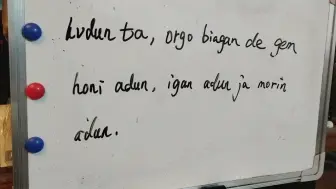 kudun ta, orgo bingan de gem
honi adun, igan adun ja morin
adun.